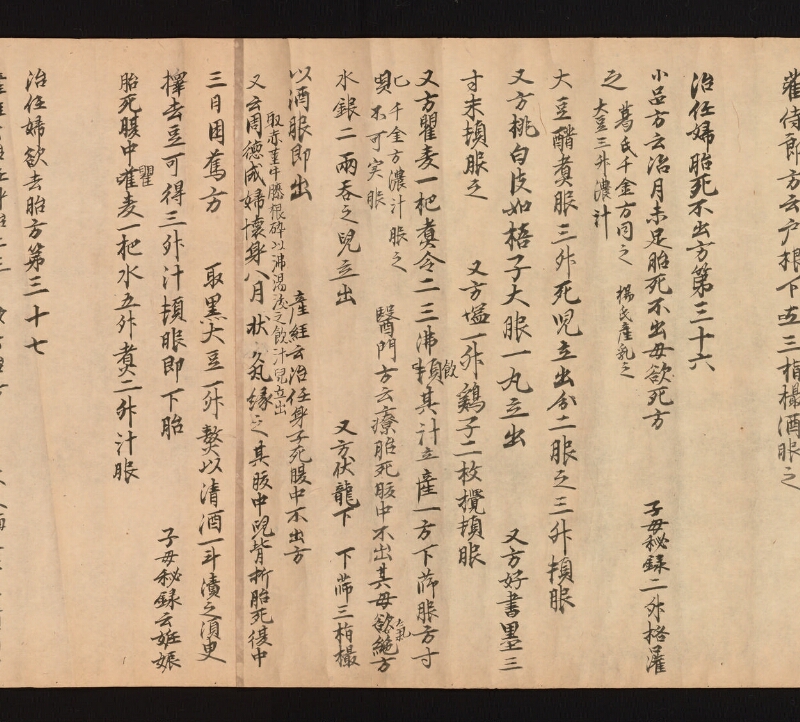 崔侍郎方云户根下土三指撮酒服之
治任婦胎死不出方第三十六
小品方云治月未足胎死不出母欲死方 子母秘録二升格灌
之 葛氏千金方同之 楊氏産乳之
大豆三升濃汁
大豆醋煑服三升死兒立出分二服之三升頓服
又方桃白皮如梧子大服一丸立出 又方好書墨三
寸末頓服之 又方塩一升鷄子二枚攪頓服
又方瞿麦一把煑令二三沸頓飲其汁立産一方下篩服方寸
匕 千金方濃汁服之
唄 不可实服 醫門方云療胎死腹中不出其母氣欲絶方
水銀二兩吞之兒立出 又方伏龍下 下篩三指撮
以酒服即出 産経云治任身子死腹中不出方
取赤茎牛膝根碎以沸湯淩之飲汁兒立出
又云周德成婦懐身八月状 㚑缘之其腹中兒背折胎死腹中
三日困篤方 取黒大豆一升熬以清酒一斗漬之湏臾
擇去豆可得三升汁頓服即下胎 子母秘録云妊娠
胎死腹中瞿麦一把水五升煑二升汁服
治任婦欲去胎方第三十七